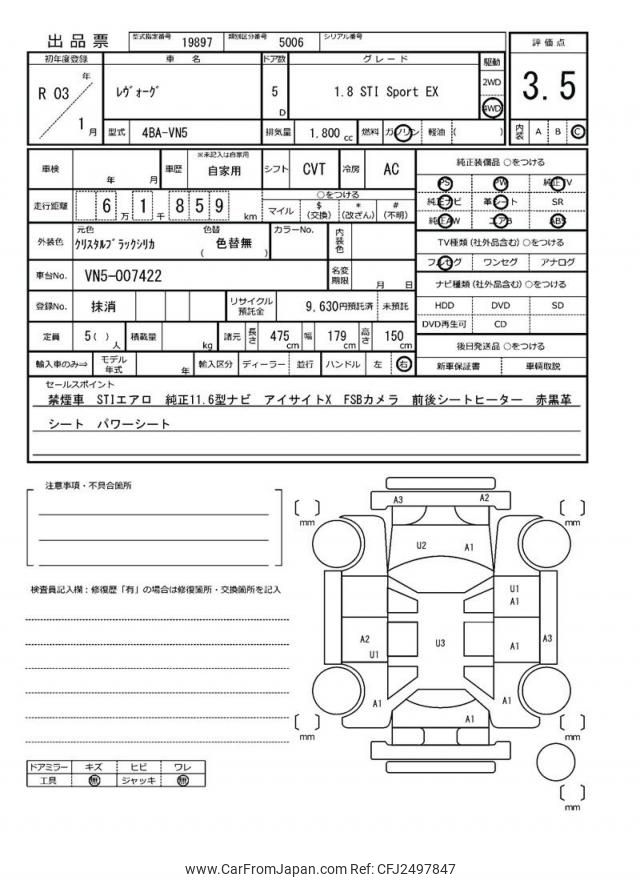 出品票
型式指定番号 19897 類別区分番号 5006 シリアル番号
初年度登録 車名 ドア数 グレード 駆動 評価点
R 03 年 1 月
レヴォーグ 5 D 1.8 STI Sport EX 2WD 4WD 3.5
型式 4BA-VN5 排気量 1.800 cc 燃料 ガソリン 軽油 ( ) 内装 A B C
車検 年 月 車歴 ※未記入は自家用 自家用 シフト CVT 冷房 AC
走行距離 6 万 1 千 8 5 9 km ○をつける
マイル $ (交換) * (改ざん) # (不明)
外装色 元色 クリスタルブラックシリカ 色替 ( 色替無 ) カラーNo. 内装色
車台No. VN5-007422 名変期限 月 日
登録No. 抹消 リサイクル預託金 9,630円預託済 未預託
定員 5 ( ) 人 積載量 kg 諸元 長さ 475 cm 幅 179 cm 高さ 150 cm
輸入車のみ⇒ モデル年式 年 輸入区分 ディーラー 並行 ハンドル 左 右
純正装備品 ○をつける
PS PW 純正TV
純正ナビ 革シート SR
純正AW エアB ABS
TV種類 (社外品含む) ○をつける
フルセグ ワンセグ アナログ
ナビ種類 (社外品含む) ○をつける
HDD DVD SD
DVD再生可 CD
後日発送品 ○をつける
新車保証書 車輌取説
セールスポイント
禁煙車 STIエアロ 純正11.6型ナビ アイサイトX FSBカメラ 前後シートヒーター 赤黒革
シート パワーシート
注意事項・不具合箇所
検査員記入欄：修復歴「有」の場合は修復箇所・交換箇所を記入
ドアミラー キズ ヒビ ワレ
工具 無 ジャッキ 無
A3 A2
[ ] mm [ ] mm
U2 A1
U1
A1
A2
U1
U3
A1
A3
A1 A1
A1
[ ] mm [ ] mm
[ ] mm
www.CarFromJapan.com Ref: CFJ2497847